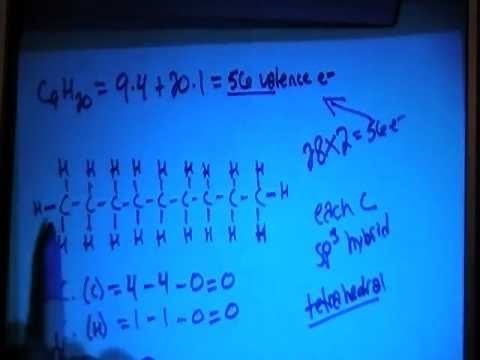 C₉H₂₀ = 9·4 + 20·1 = 56 valence e⁻
28×2 = 56 e⁻
H H H H H H H H H
H-C-C-C-C-C-C-C-C-C-H
H H H H H H H H H
each C
sp³ hybrid
tetrahedral
F.C. (C) = 4 - 4 - 0 = 0
F.C. (H) = 1 - 1 - 0 = 0